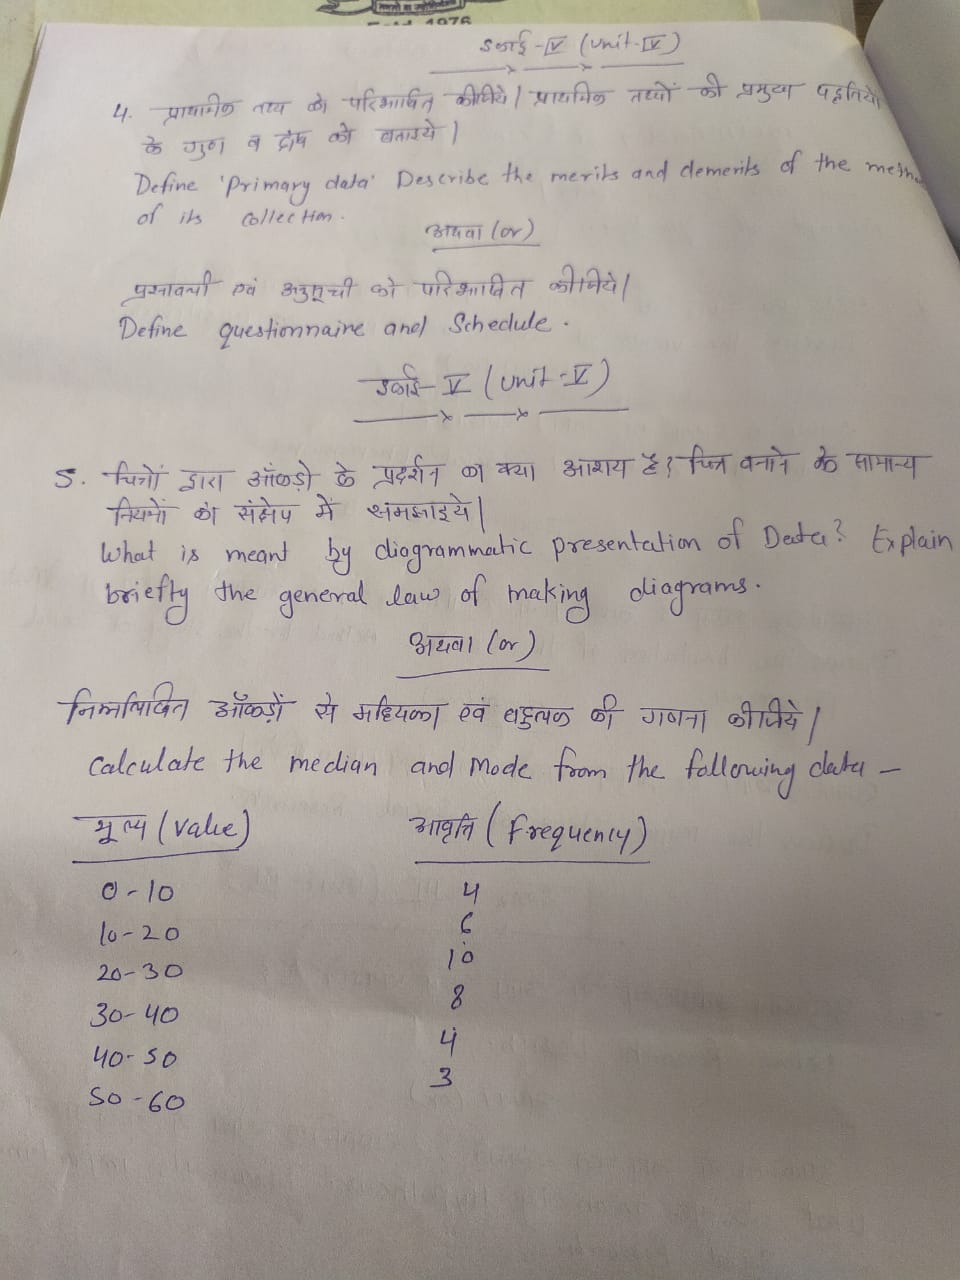 1976
इकाई-IV (Unit-IV)
4. प्राथमिक तथ्य को परिभाषित कीजिये। प्राथमिक तथ्यों की प्रमुख पद्वतियों
के गुण व दोष को बताइये।
Define 'Primary data' Describe the merits and demerits of the
of its collection.
अथवा (or)
प्रश्नावली एवं अनुसूची को परिभाषित कीजिये।
Define questionnaire and Schedule.
इकाई-V (Unit-V)
5. चित्रों द्वारा आँकड़ो के प्रदर्शन का क्या आशय है? चित्र बनाने के सामान्य
नियमों को संक्षेप में समझाइये।
What is meant by diagrammatic presentation of Data? Explain
briefly the general law of making diagrams.
अथवा (or)
निम्नलिखित आँकड़ों से मध्यिका एवं बहुलक की गणना कीजिये।
Calculate the median and Mode from the following data -
मूल्य (Value) आवृत्ति (frequency)
0-10 4
10-20 6
20-30 10
30-40 8
40-50 4
50-60 3